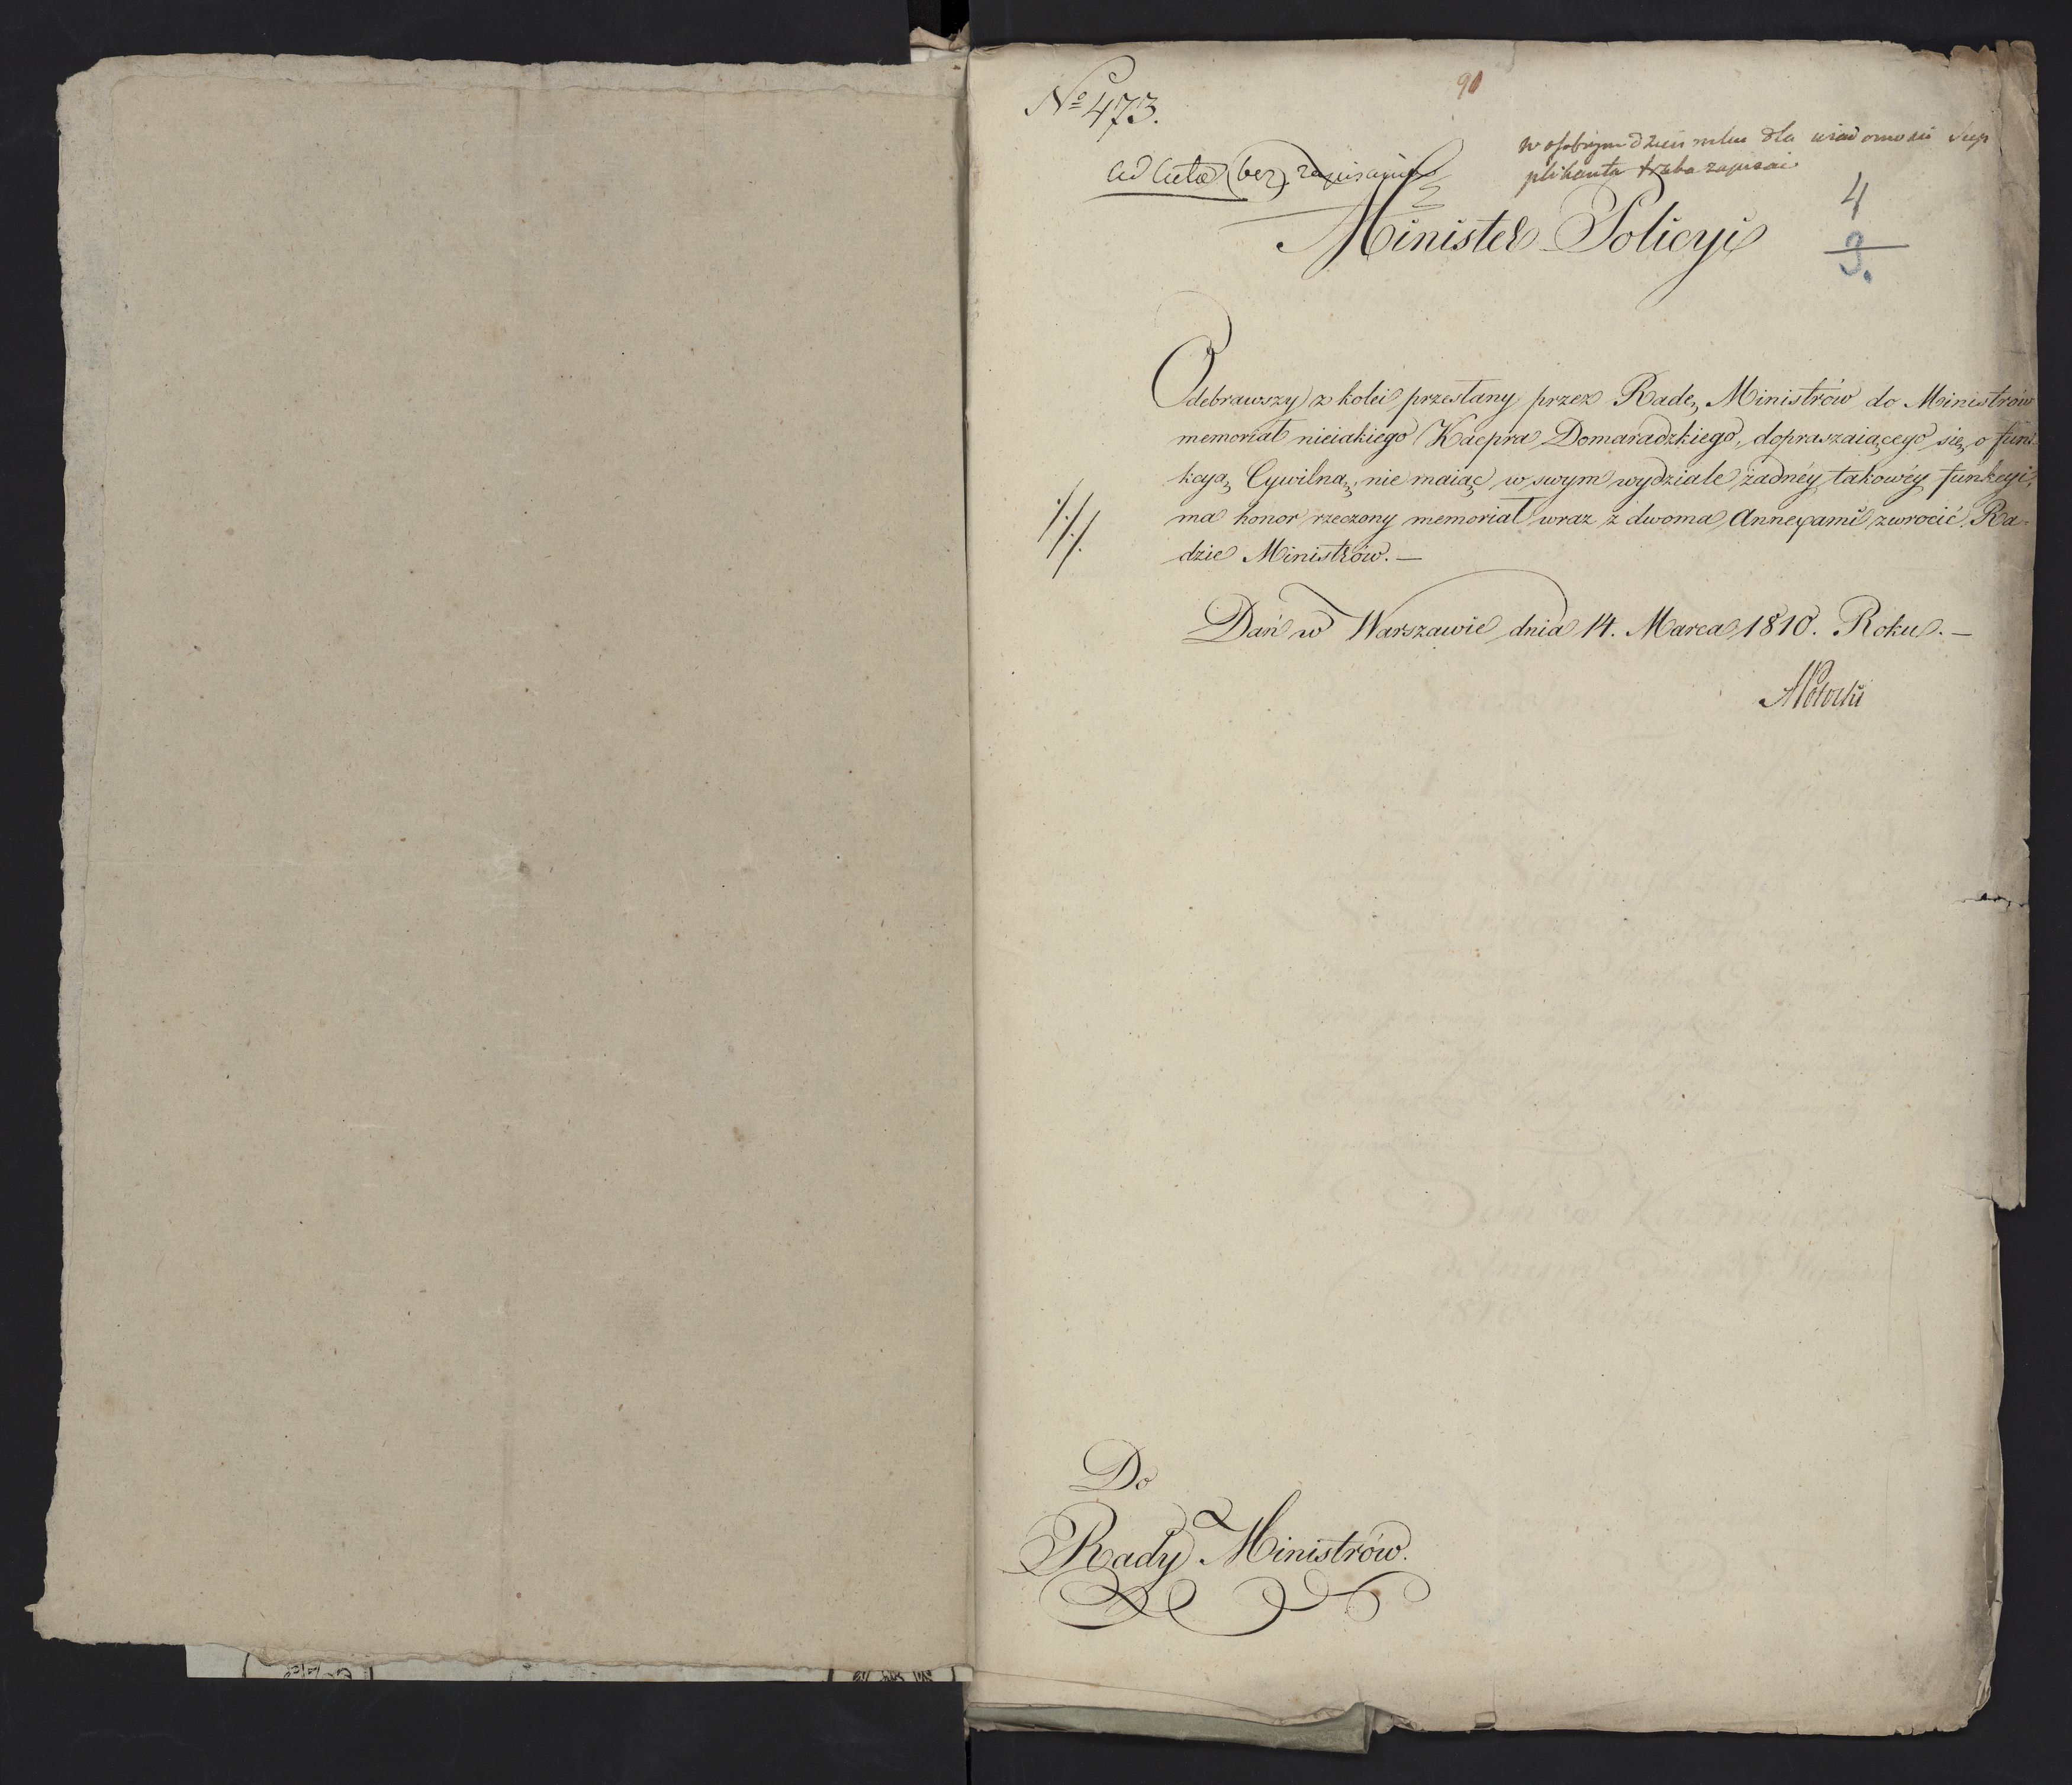 No 473.
90
ad acta (bez) zapisania
w osobnym dzienniku dla wiadomości Sup
plikanta trzeba zapisać
4
9.
Minister Policyi
Odebrawszy z kolei przesłany przez Radę Ministrów do Ministrów
memoriał nieiakiego Kacpra Domaradzkiego, dopraszaiącego się o fun-
kcyą Cywilną, nie maiąc w swym wydziale żadnéy takowéy funkcyi,
ma honor rzeczony memoriał wraz z dwoma Annexami zwrocić Ra-
dzie Ministrów. —
Dań w Warszawie dnia 14. Marca 1810. Roku. —
APotocki
Do
Rady Ministrów.